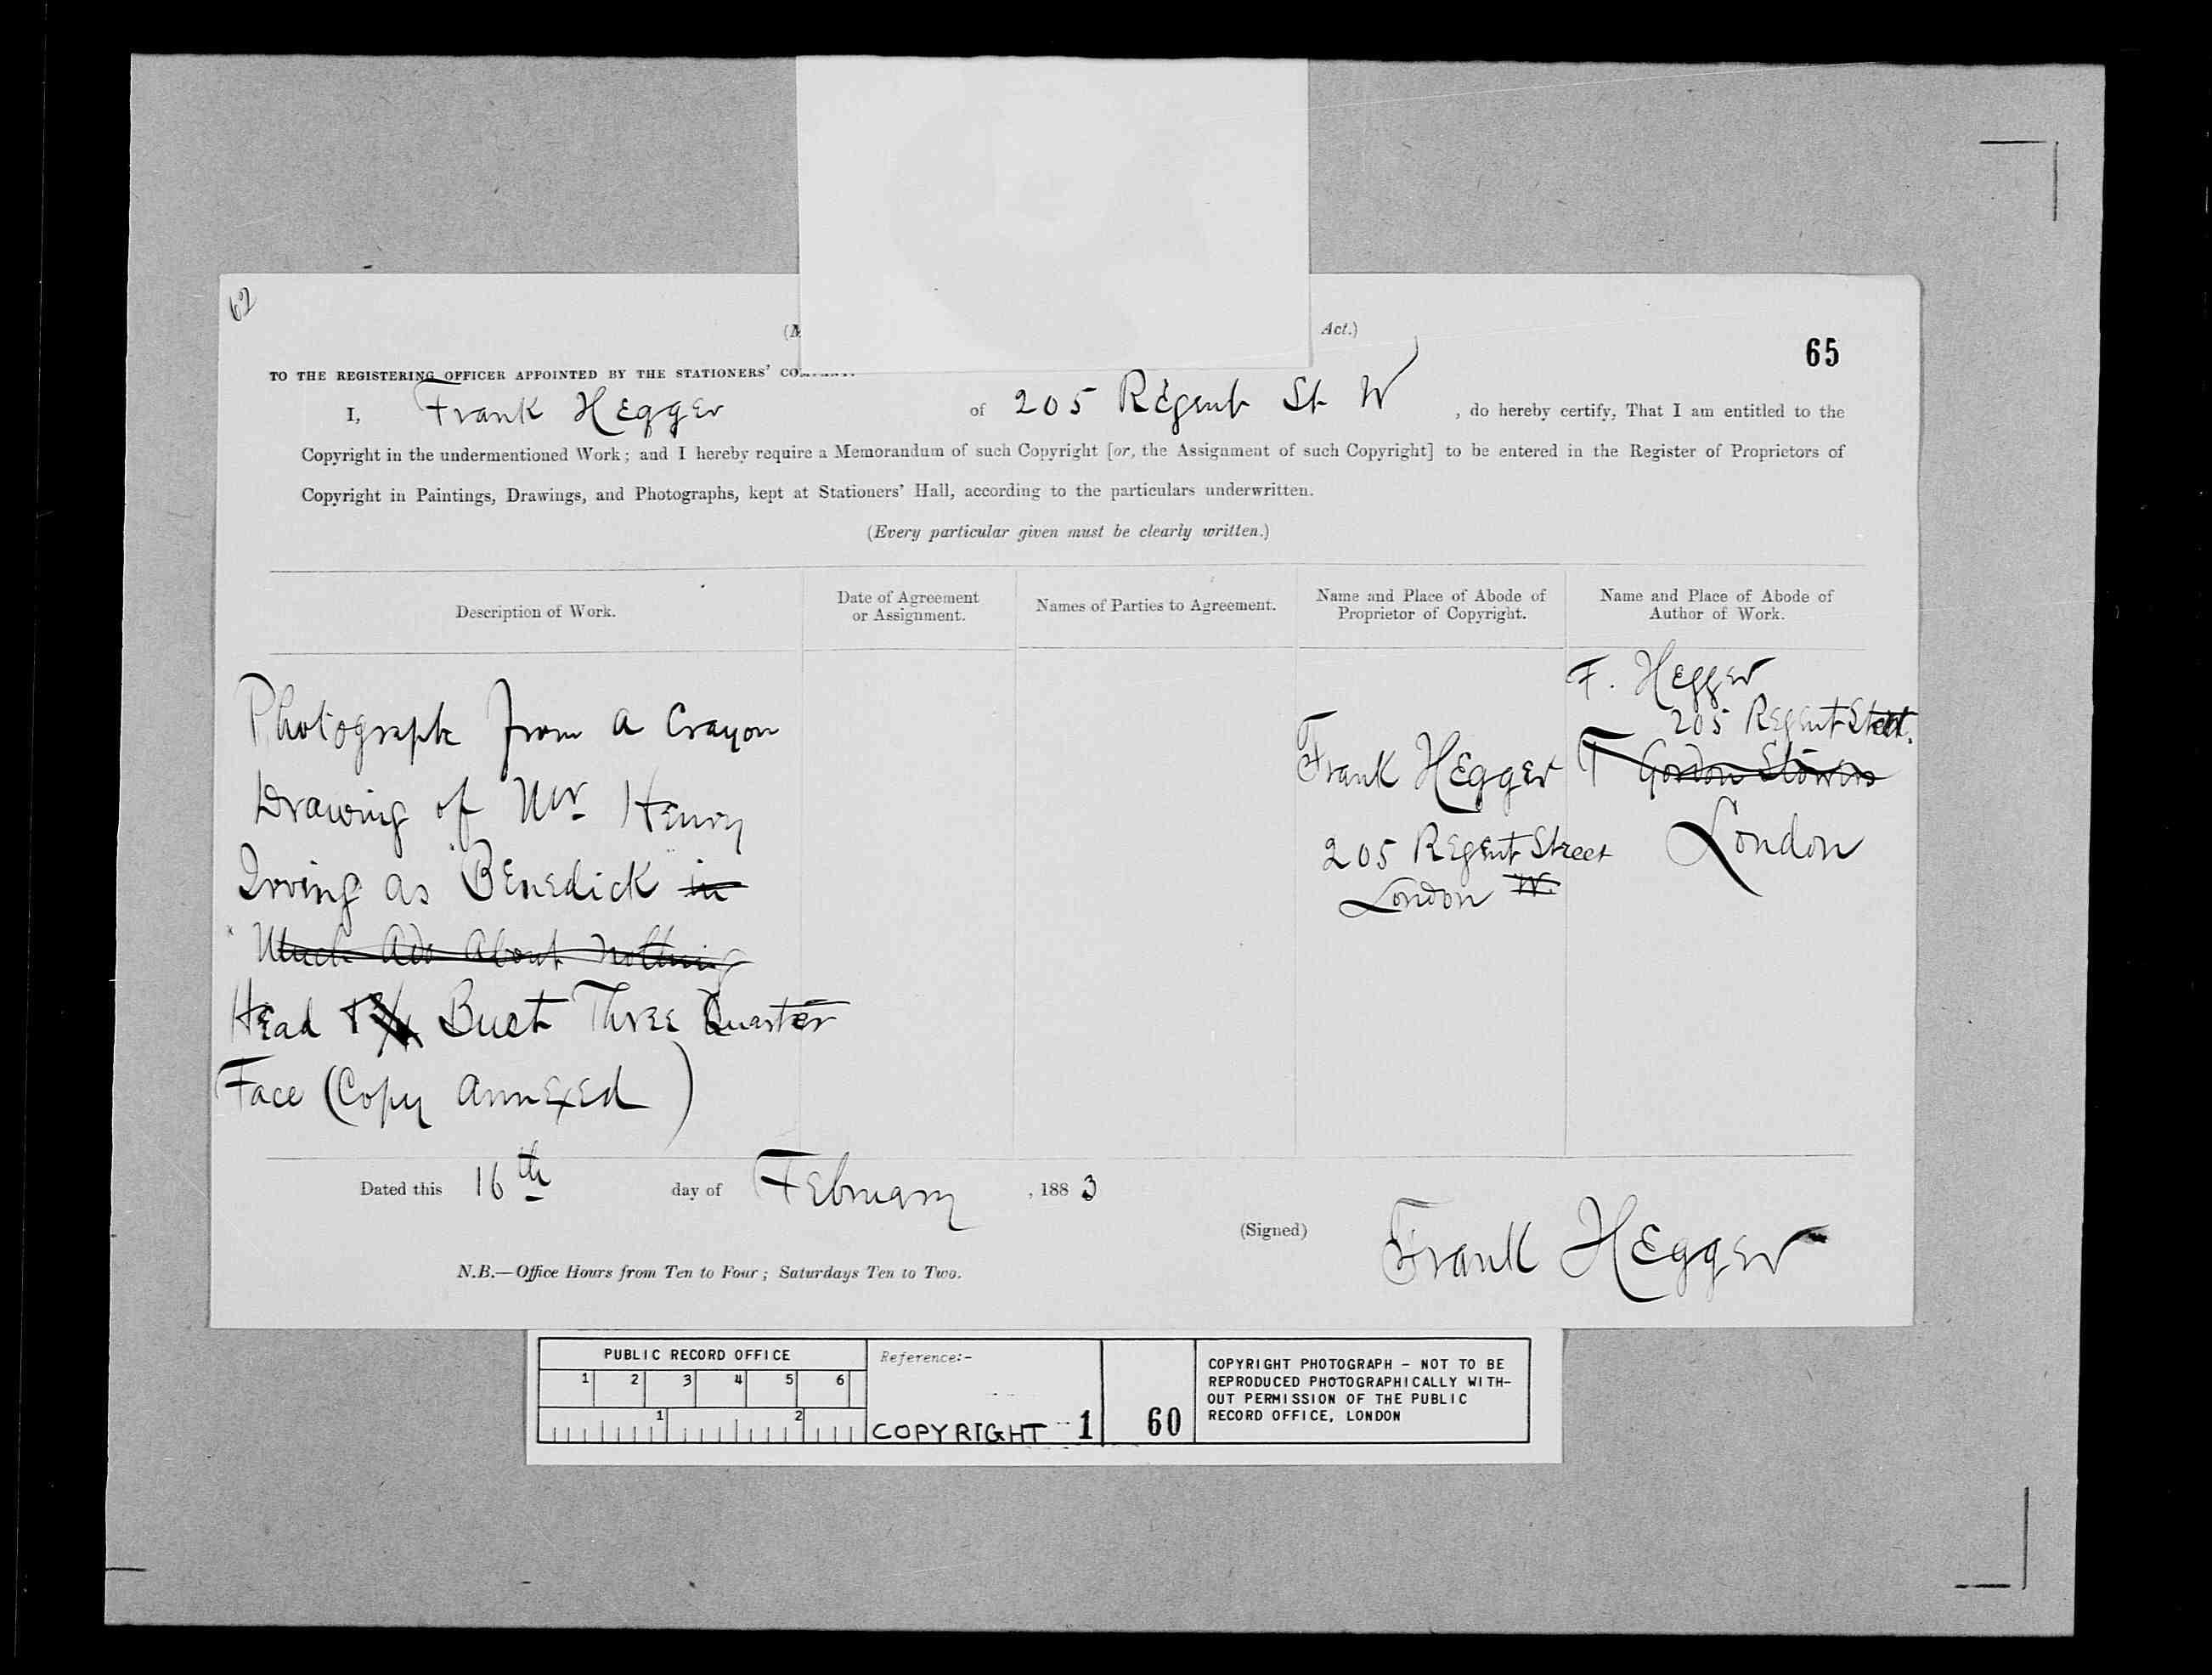 62
Act.)
65
TO THE REGISTERING OFFICER APPOINTED BY THE STATIONERS'
I, Frank Hegger of 205 Regent St W, do hereby certify, That I am entitled to the
Copyright in the undermentioned Work; and I hereby require a Memorandum of such Copyright [or, the Assignment of such Copyright] to be entered in the Register of Proprietors of
Copyright in Paintings, Drawings, and Photographs, kept at Stationers' Hall, according to the particulars underwritten.
(Every particular given must be clearly written.)
Description of Work.
Date of Agreement
or Assignment.
Names of Parties to Agreement.
Name and Place of Abode of
Proprietor of Copyright.
Name and Place of Abode of
Author of Work.
Photograph from a Crayon
Drawing of Mr Henry
Irving as "Benedick" in
"Much Ado About Nothing
Head & Bust Three Quarter
Face (Copy annexed)
Frank Hegger
205 Regent Street
London W.
F. Hegger
205 Regent Street.
T Gordon Stowers
London
Dated this 16th day of February, 1883
(Signed) Frank Hegger
N.B.—Office Hours from Ten to Four; Saturdays Ten to Two.
PUBLIC RECORD OFFICE
1 2 3 4 5 6
1 2
Reference:-
COPYRIGHT 1
60
COPYRIGHT PHOTOGRAPH - NOT TO BE
REPRODUCED PHOTOGRAPHICALLY WITH-
OUT PERMISSION OF THE PUBLIC
RECORD OFFICE, LONDON